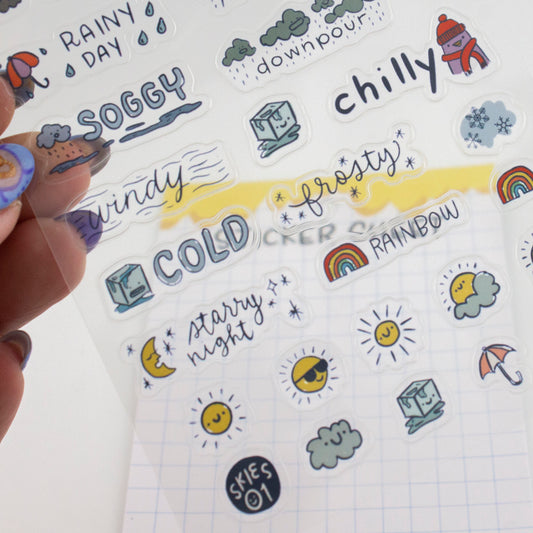 RAINY
DAY
downpour
SOGGY
chilly
windy
frosty
COLD
RAINBOW
starry
night
SKIES
01